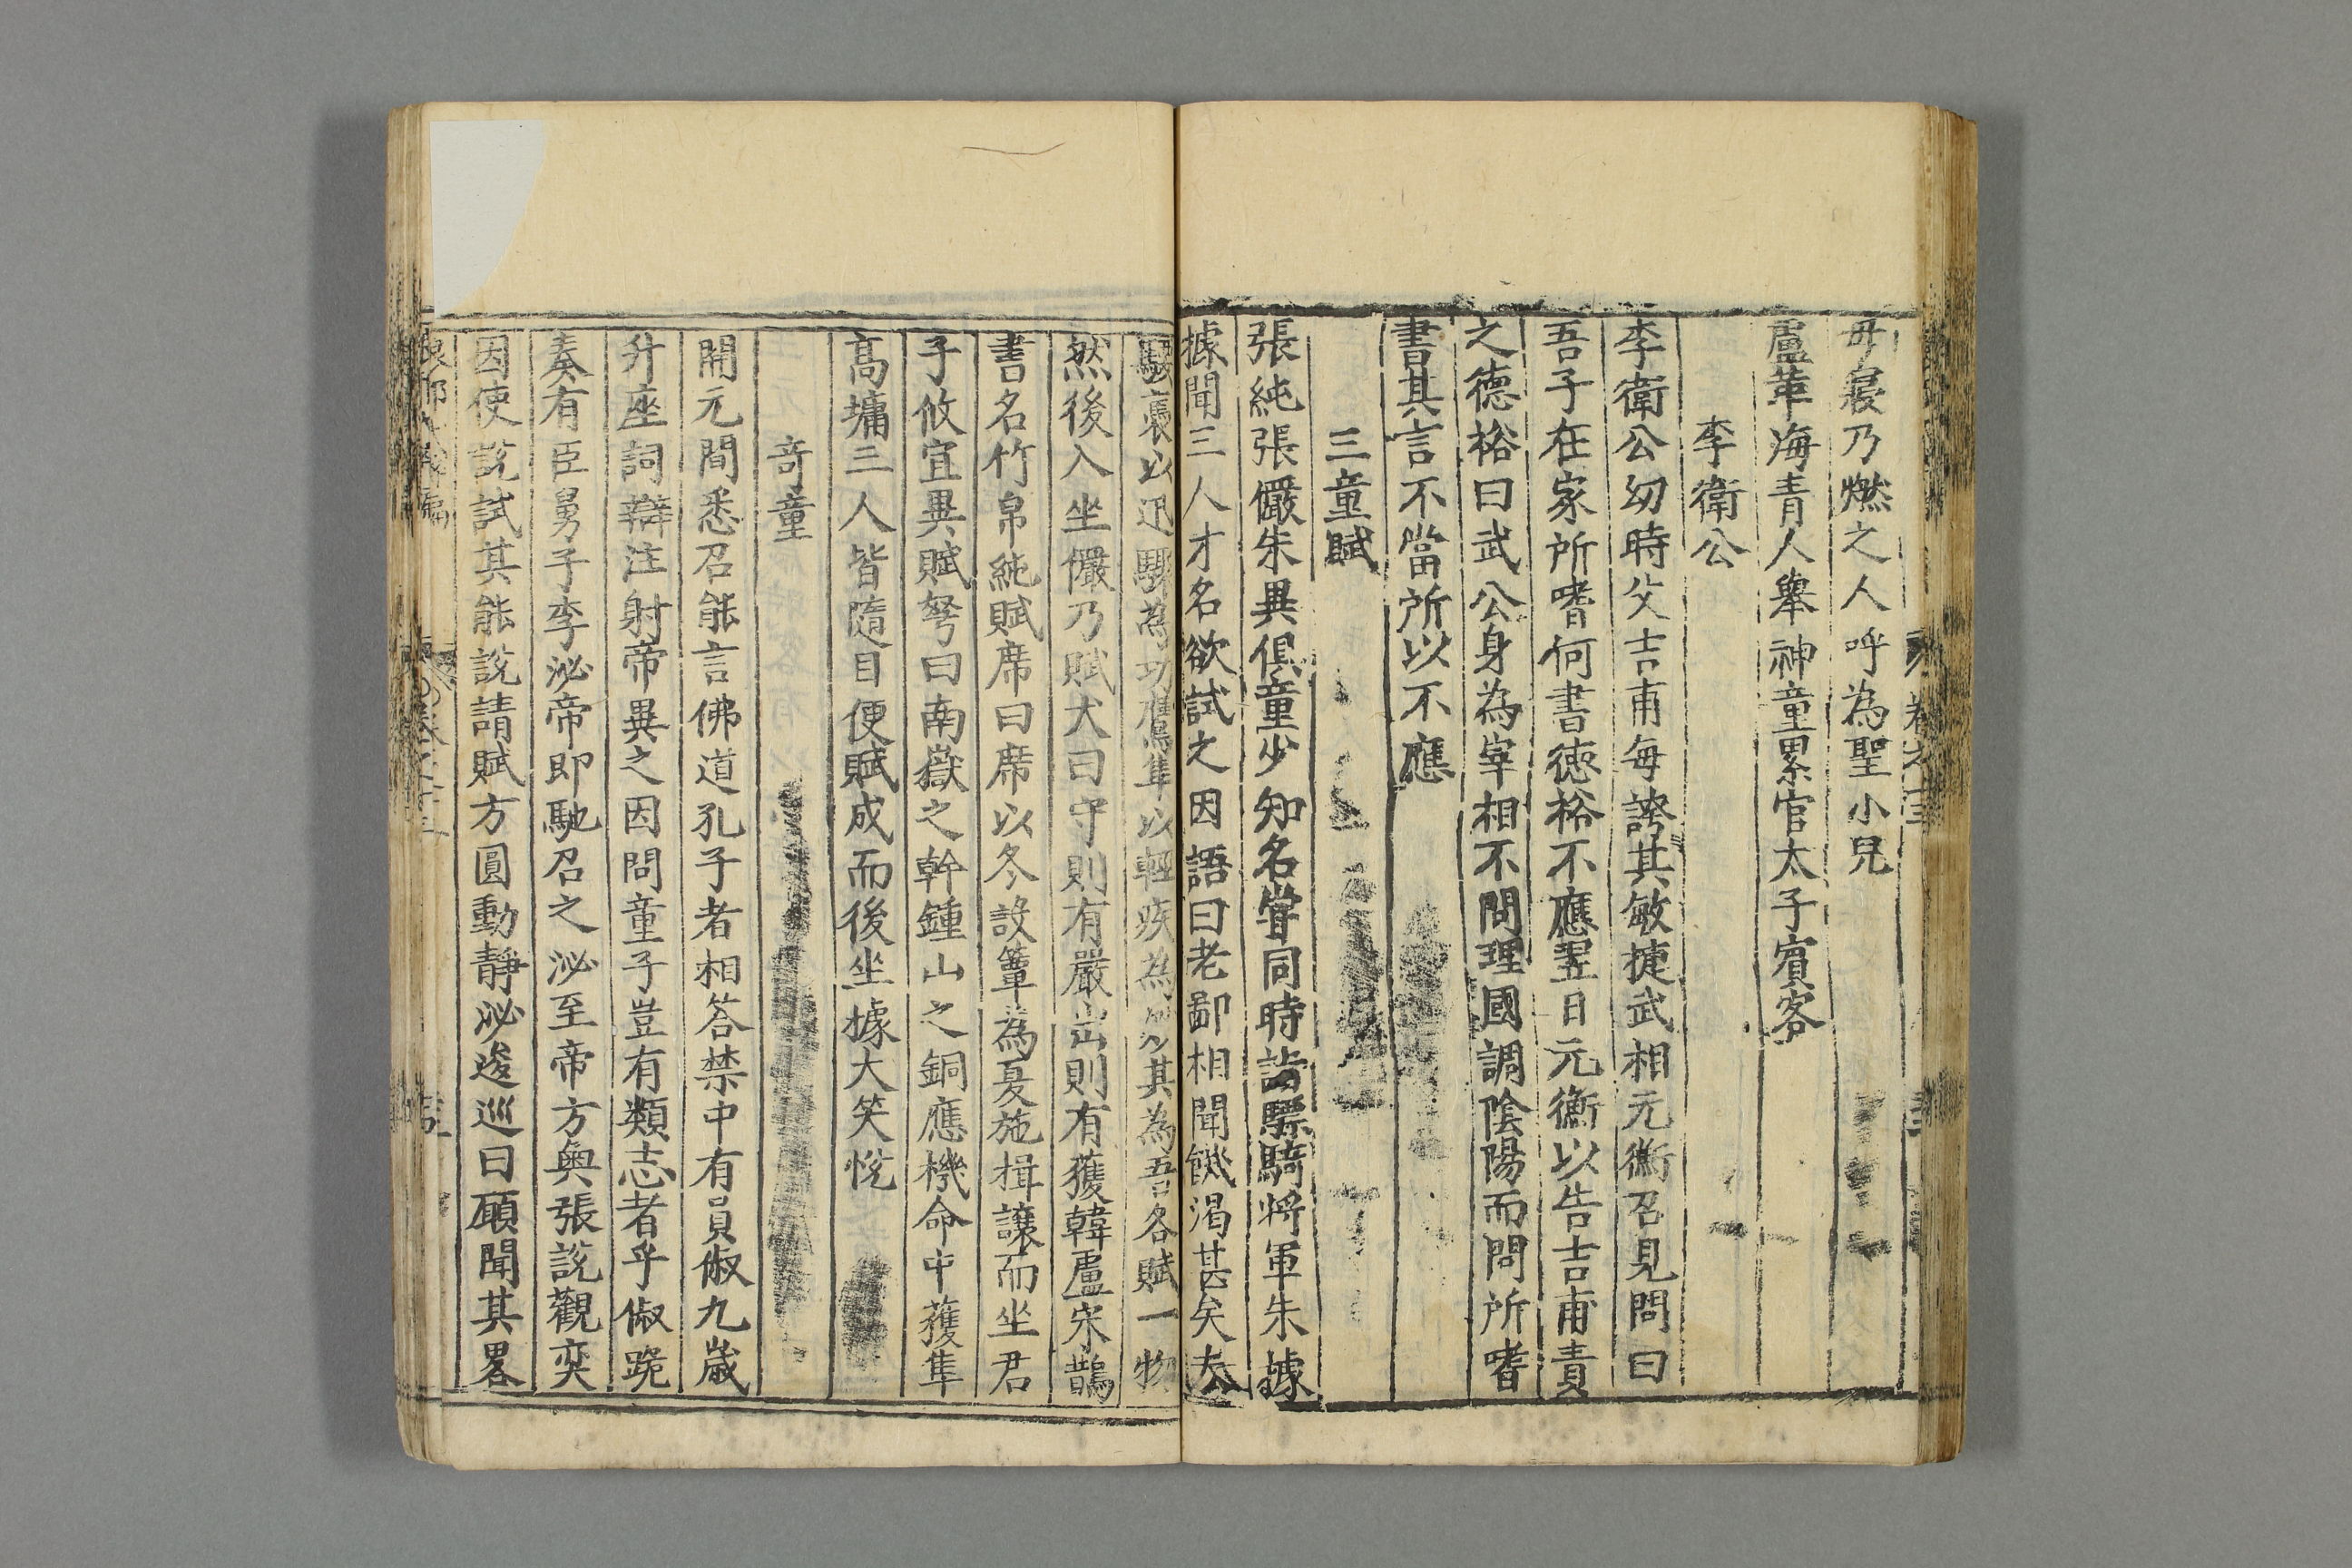 毋寢乃燃之人呼為聖小兒
盧華海青人舉神童累官太子賓客
李衛公
李衛公幼時父吉甫每誇其敏捷武相元衡召見問曰
吾子在家所嗜何書德裕不應翌日元衡以告吉甫責
之德裕曰武公身為宰相不問理國調陰陽而問所嗜
書其言不當所以不應
三童賦
張純張儼朱異俱童少知名嘗同時詣驃騎將軍朱據
據聞三人才名欲試之因語曰老鄙相聞饑渴甚矣夫
騕褭以迅驟為功鷹隼以輕疾為妙其為吾各賦一物
然後入坐儼乃賦犬曰守則有嚴出則有獲韓盧宋鵲
書名竹帛純賦席曰席以冬設簟為夏施揖讓而坐君
子攸宜異賦弩曰南嶽之幹鍾山之銅應機命中獲隼
高墉三人皆隨目便賦成而後坐據大笑悅
奇童
開元間悉召能言佛道孔子者相答禁中有員俶九歲
升座詞辯注射帝異之因問童子豈有類志者乎俶跪
奏有臣舅子李泌帝即馳召之泌至帝方與張說觀奕
因使說試其能說請賦方圓動靜泌逡巡曰願聞其畧
卷之三